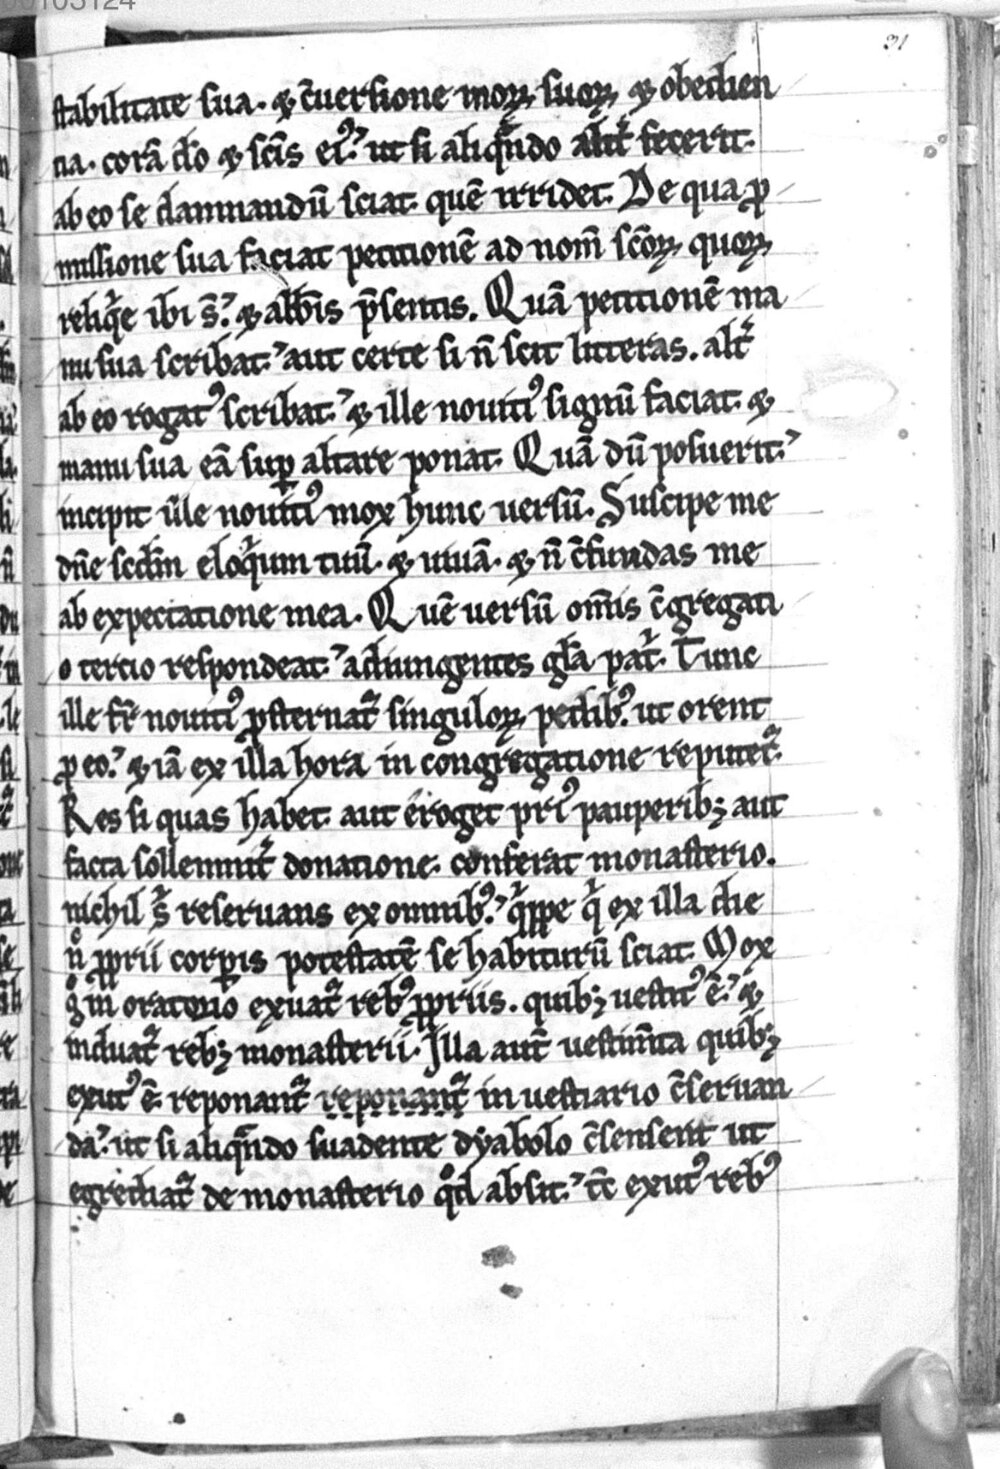 00103124
31
stabilitate sua. ⁊ c̄uersione moꝝ suoꝝ, ⁊ obedien
tia. corā do̅ ⁊ sc̄is ei᷒. ut si aliqn̄do alit̄ fecerit.
ab eo se damnandū sciat. quē irridet. De qua ꝓ
missione sua faciat petitionē ad nom̄ sc̄oꝝ, quoꝝ,
reliq̄e ibi s̄. ⁊ abb̄is p̄sentis. Quā petitionē ma
nu sua scribat. aut certe si n̄ scit litteras. alt̄
ab eo rogat᷒ scribat. ⁊ ille nouiti᷒ signū faciat. ⁊
manu sua eā suꝑ altare ponat. Quā dū posuerit.
incipit ille nouiti᷒ mox hunc uersū. Suscipe me
dn̄e scd̄m eloq̄ium tuū. ⁊ uiuā. ⁊ n̄ c̄fundas me
ab expectatione mea. Quē uersū om̄is c̄gregati
o tercio respondeat. adiungentes gl̄a pat̄. Tunc
ille fr̄ nouiti᷒ ꝓsternat̄ singuloꝝ, pedib᷒. ut orent
ꝓ eo. ⁊ iā ex illa hora in congregatione reputet̄.
Res si quas habet. aut eroget pri᷒ pauperibꝫ aut
facta sollemnit̄ donatione. conferat monasterio.
nichil s̄ reseruans ex omnib᷒. q̄ꝓpe q̄ ex illa die
n̄ ꝓprii corꝑis potestatē se habiturū sciat. Mox
g̊ in oratorio exuat̄ reb᷒ ꝓpriis. quibꝫ uestit᷒ ē. ⁊
induat̄ rebꝫ monasterii. Illa aut̄ uestim̄ta quibꝫ
exut᷒ ē. reponant̄ reponant̄ in uestiario c̄seruan
da. ut si aliqn̄do suadente dyabolo c̄senserit ut
egrediat̄ de monasterio qd̄ absit. tc̄ exut᷒ reb᷒